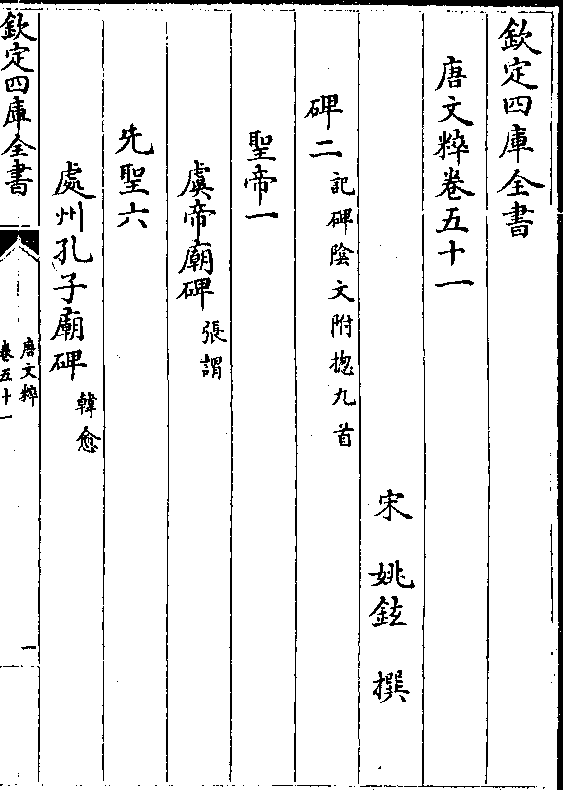 欽定四庫全書
唐文粹卷五十一
宋 姚鉉 撰
碑二 記碑陰文附揔九首
聖帝一
虞帝廟碑 張謂
先聖六
處州孔子廟碑 韓愈
欽定四庫全書
唐文粹
卷五十一
一